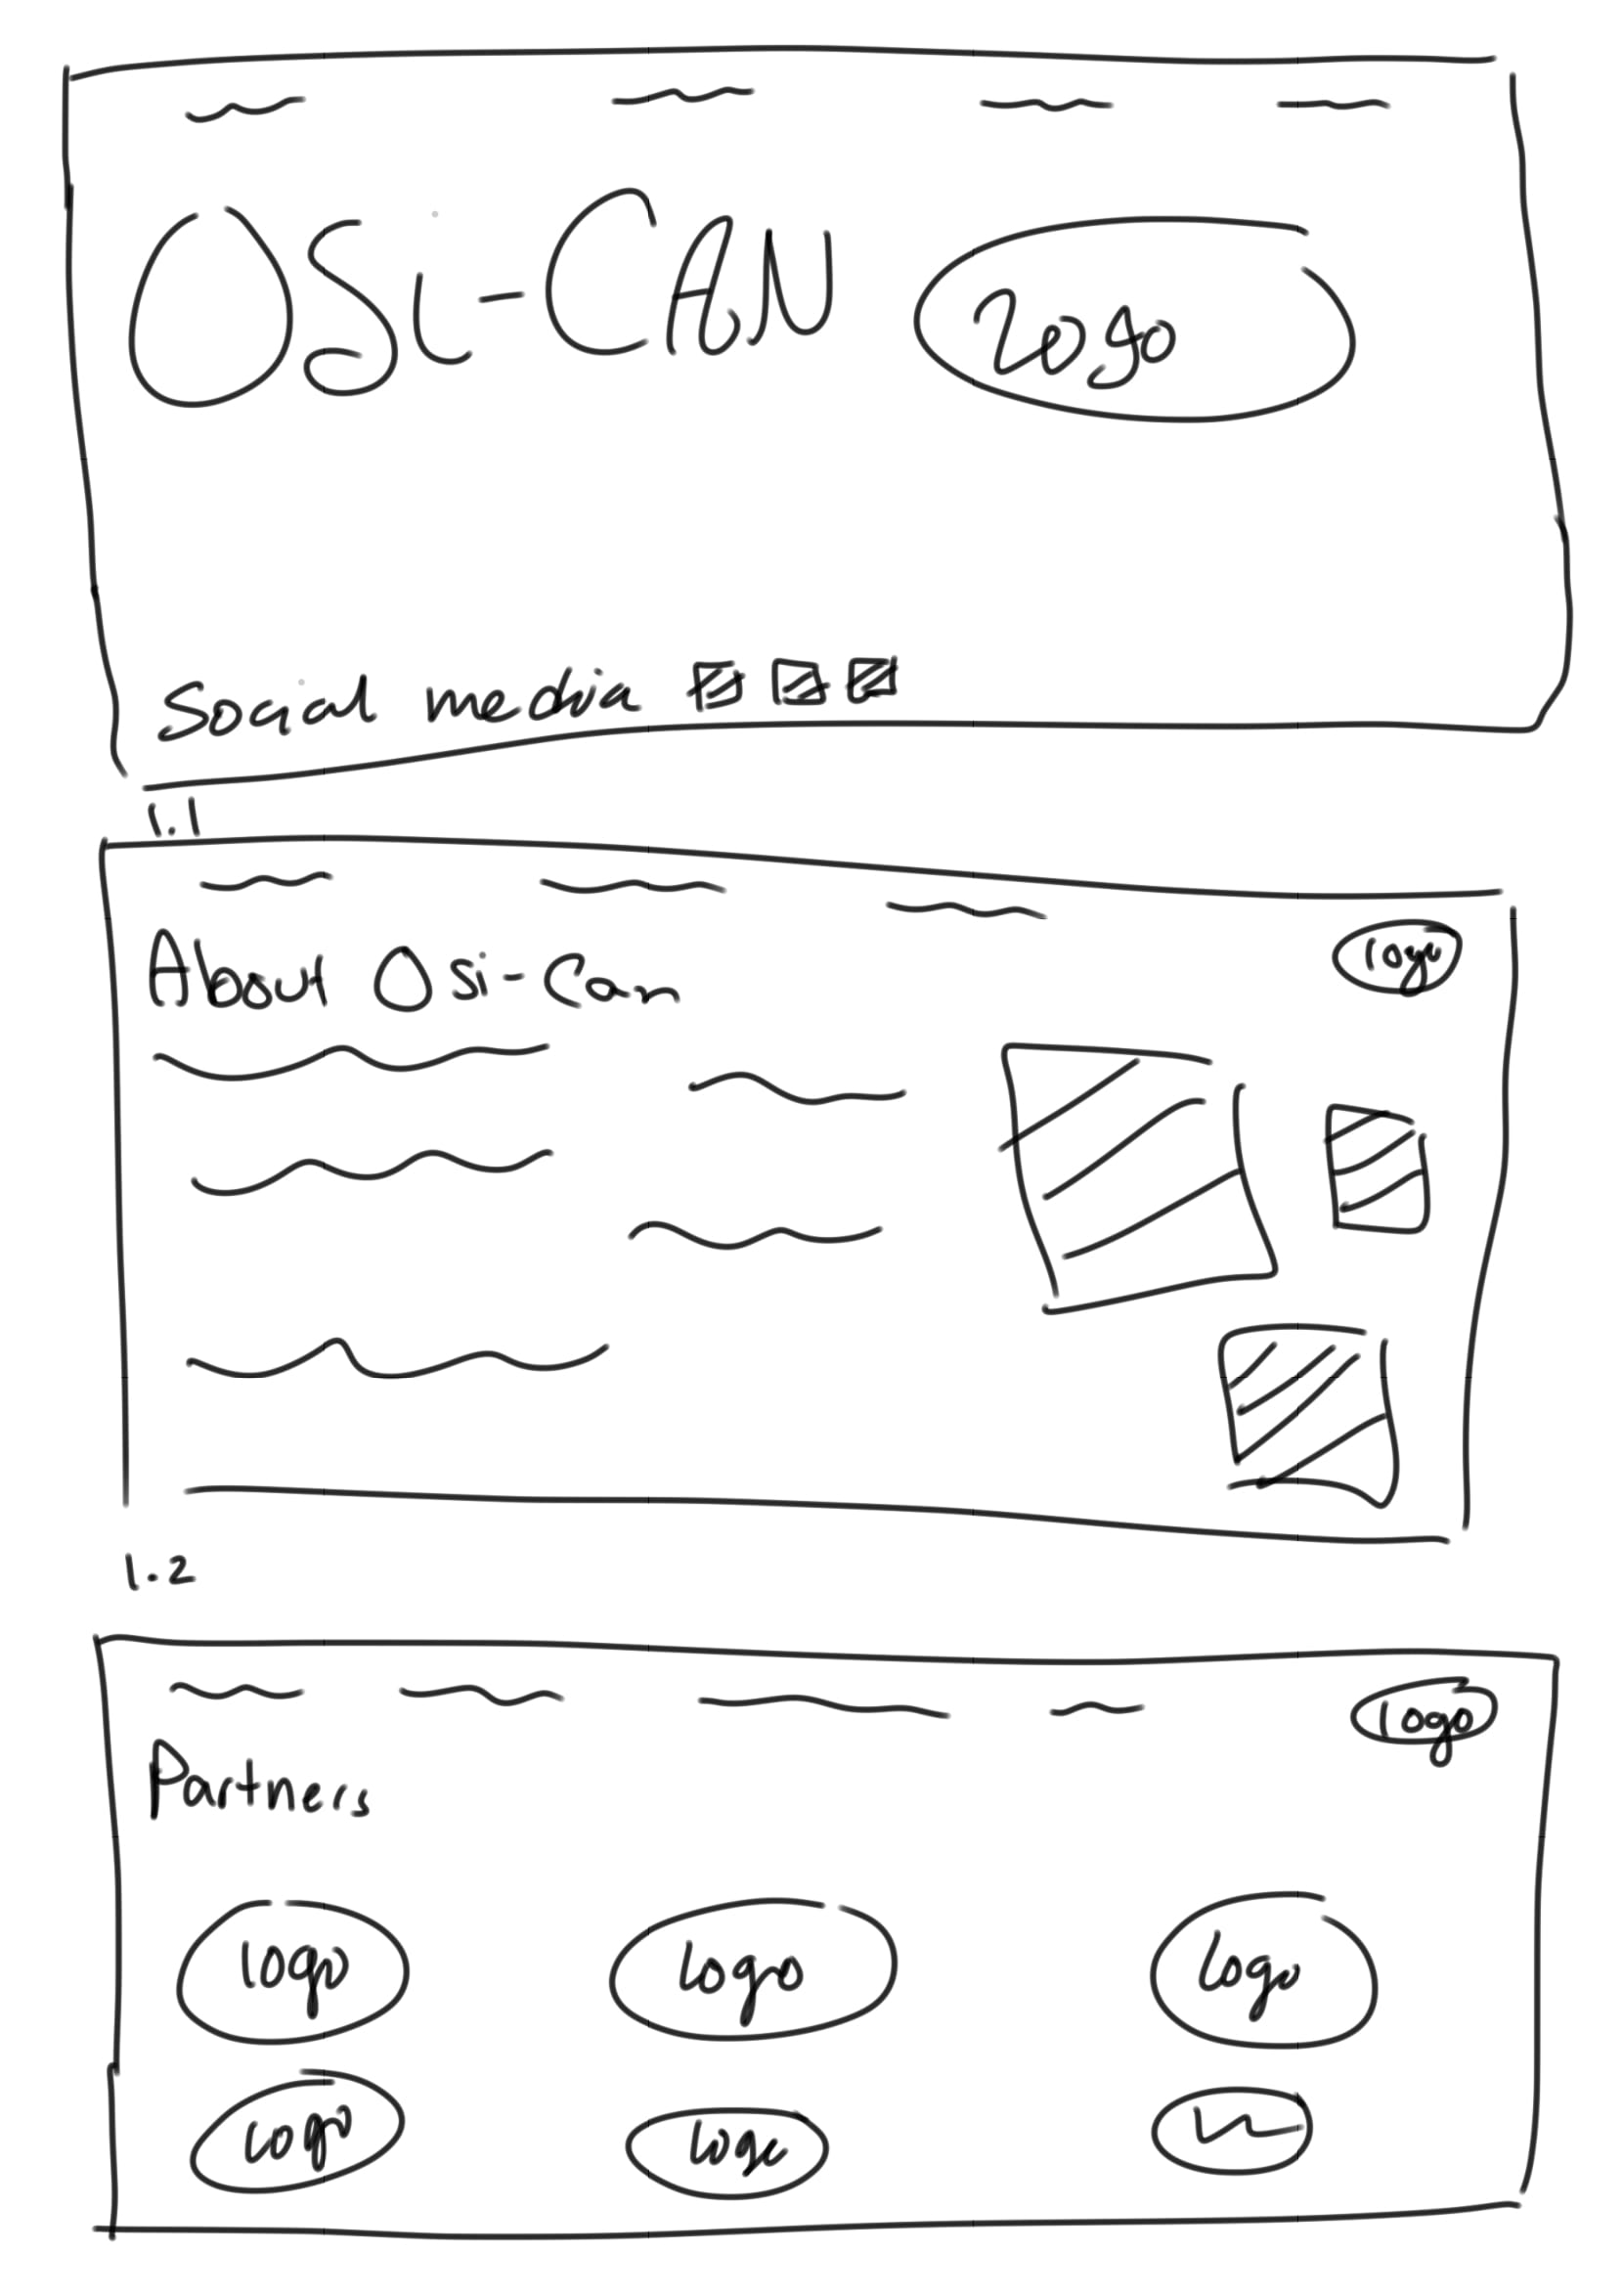 OSi-CAN logo
Social media
1.1
logo
About Osi-Can
1.2
logo
Partners
logo logo logo
logo logo